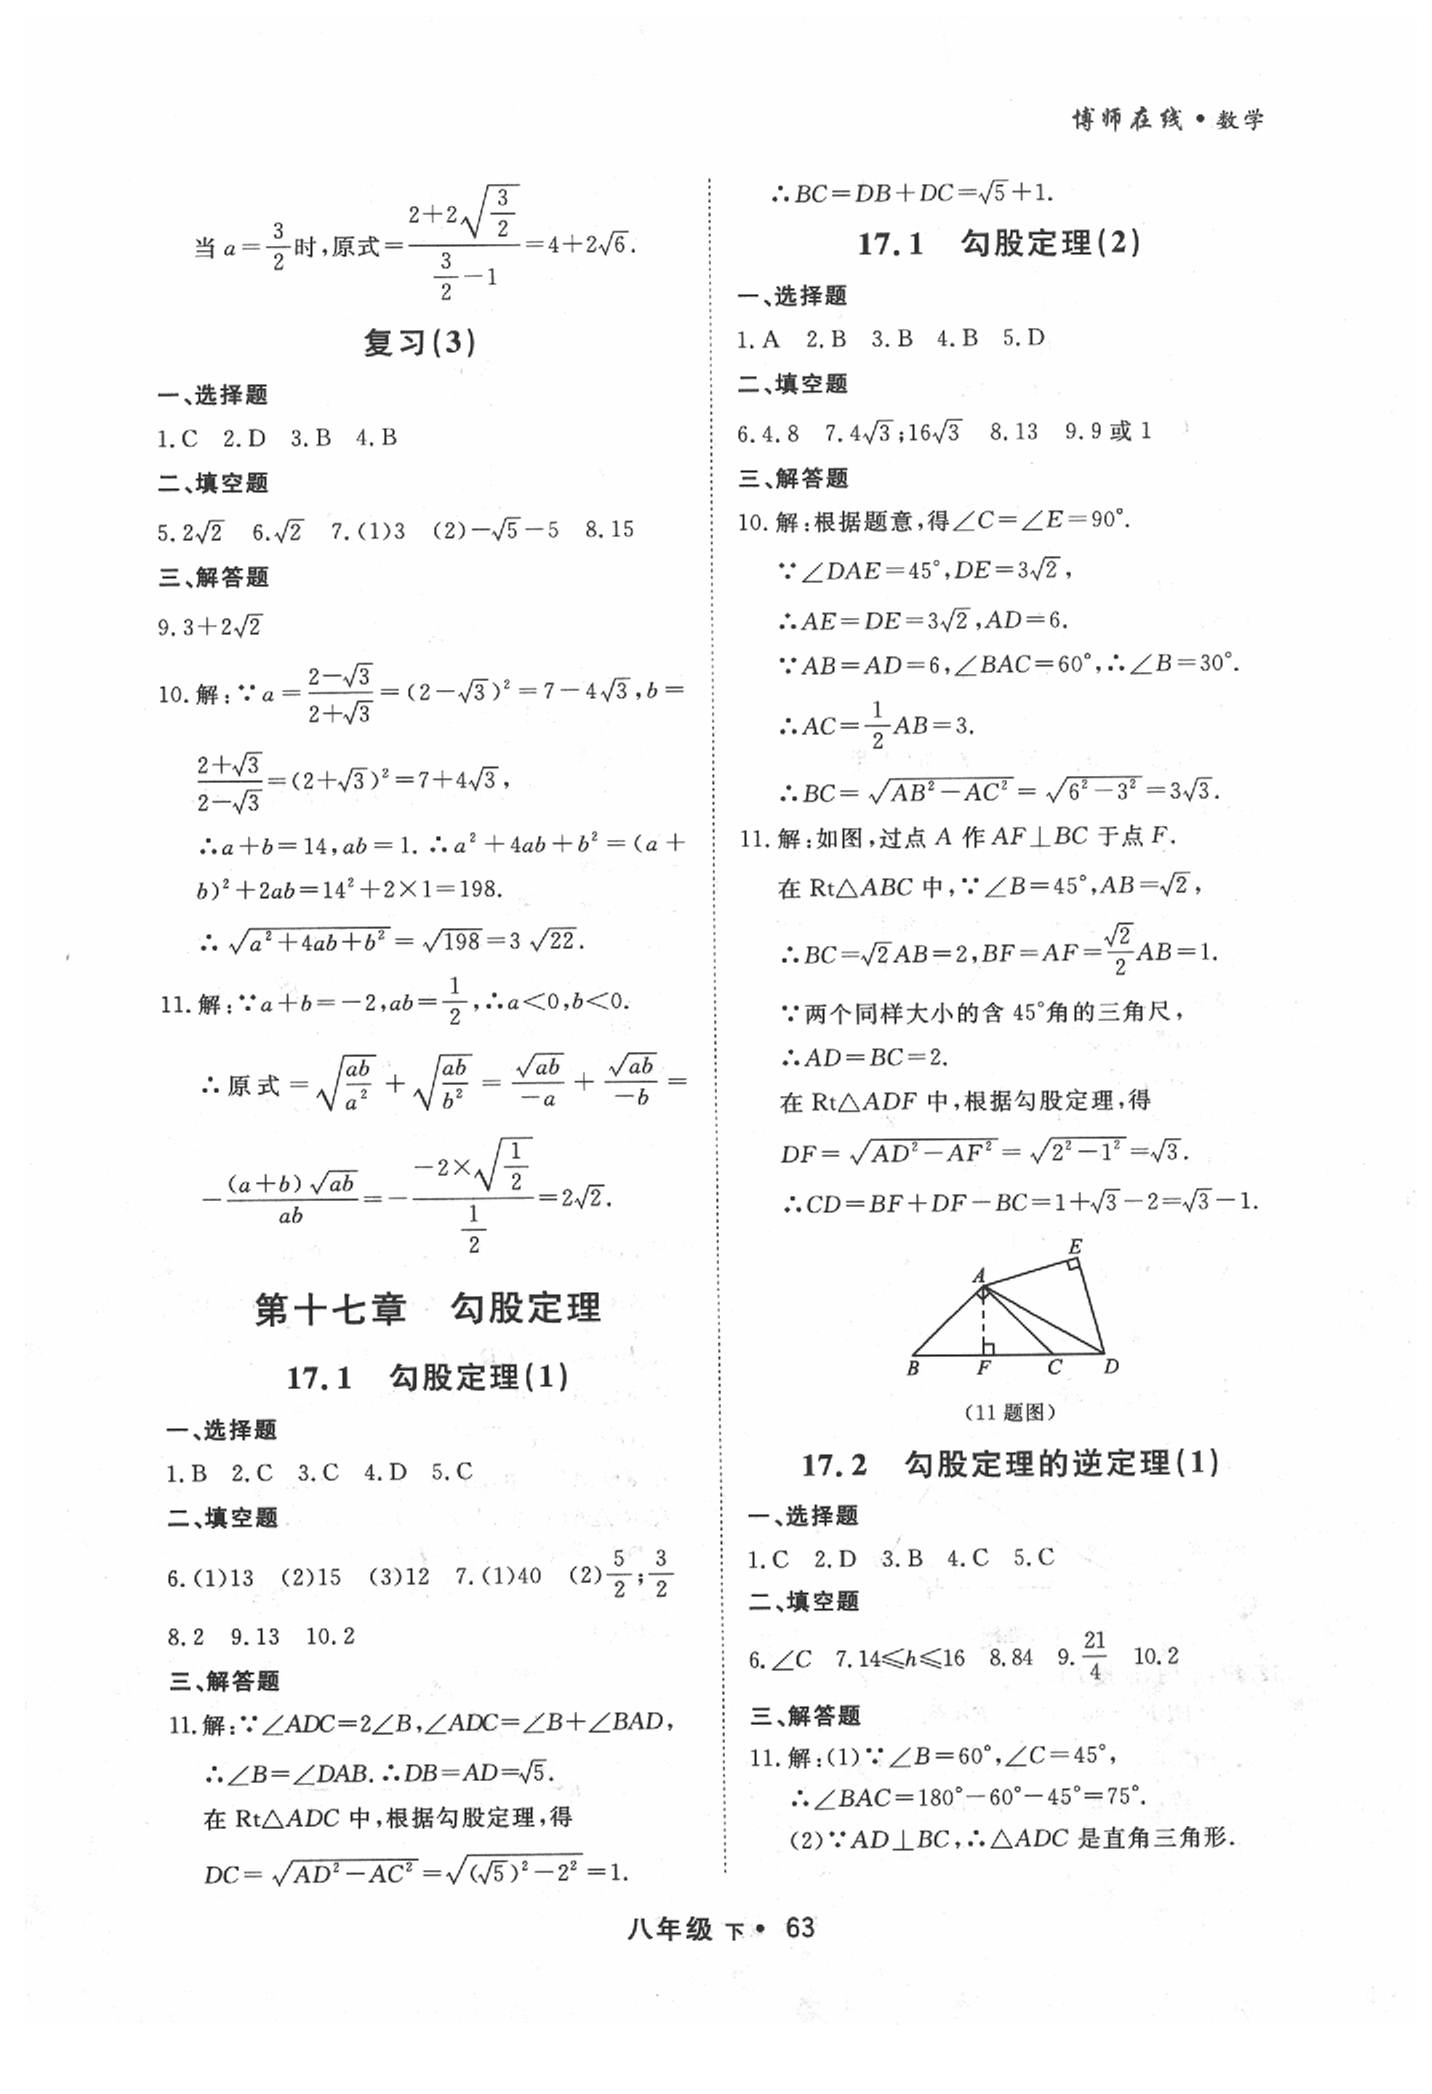 博师在线·数学
当 a=3/2时,原式=(2+2√(3/2))/(3/2-1)=4+2√6.
复习(3)
一、选择题
1.C 2.D 3.B 4.B
二、填空题
5.2√2 6.√2 7.(1)3 (2)-√5-5 8.15
三、解答题
9.3+2√2
10.解:∵a=(2-√3)/(2+√3)=(2-√3)²=7-4√3,b=
(2+√3)/(2-√3)=(2+√3)²=7+4√3,
∴a+b=14,ab=1.∴a²+4ab+b²=(a+
b)²+2ab=14²+2×1=198.
∴√(a²+4ab+b²)=√198=3√22.
11.解:∵a+b=-2,ab=1/2,∴a<0,b<0.
∴原式=√(ab/a²)+√(ab/b²)=√ab/-a+√ab/-b=
-(a+b)√ab/ab=-(-2×√(1/2))/(1/2)=2√2.
第十七章 勾股定理
17.1 勾股定理(1)
一、选择题
1.B 2.C 3.C 4.D 5.C
二、填空题
6.(1)13 (2)15 (3)12 7.(1)40 (2)5/2;3/2
8.2 9.13 10.2
三、解答题
11.解:∵∠ADC=2∠B,∠ADC=∠B+∠BAD,
∴∠B=∠DAB.∴DB=AD=√5.
在 Rt△ADC 中,根据勾股定理,得
DC=√(AD²-AC²)=√((√5)²-2²)=1.
∴BC=DB+DC=√5+1.
17.1 勾股定理(2)
一、选择题
1.A 2.B 3.B 4.B 5.D
二、填空题
6.4.8 7.4√3;16√3 8.13 9.9或1
三、解答题
10.解:根据题意,得∠C=∠E=90°.
∵∠DAE=45°,DE=3√2,
∴AE=DE=3√2,AD=6.
∵AB=AD=6,∠BAC=60°,∴∠B=30°.
∴AC=1/2AB=3.
∴BC=√(AB²-AC²)=√(6²-3²)=3√3.
11.解:如图,过点 A 作 AF⊥BC 于点 F.
在 Rt△ABC 中,∵∠B=45°,AB=√2,
∴BC=√2AB=2,BF=AF=√2/2AB=1.
∵两个同样大小的含 45°角的三角尺,
∴AD=BC=2.
在 Rt△ADF 中,根据勾股定理,得
DF=√(AD²-AF²)=√(2²-1²)=√3.
∴CD=BF+DF-BC=1+√3-2=√3-1.
E
A
B F C D
(11题图)
17.2 勾股定理的逆定理(1)
一、选择题
1.C 2.D 3.B 4.C 5.C
二、填空题
6.∠C 7.14≤h≤16 8.84 9.21/4 10.2
三、解答题
11.解:(1)∵∠B=60°,∠C=45°,
∴∠BAC=180°-60°-45°=75°.
(2)∵AD⊥BC,∴△ADC 是直角三角形.
八年级 下·63